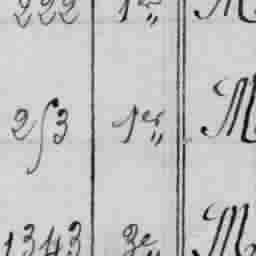 222 1er M
253 1er M
1343 3e M